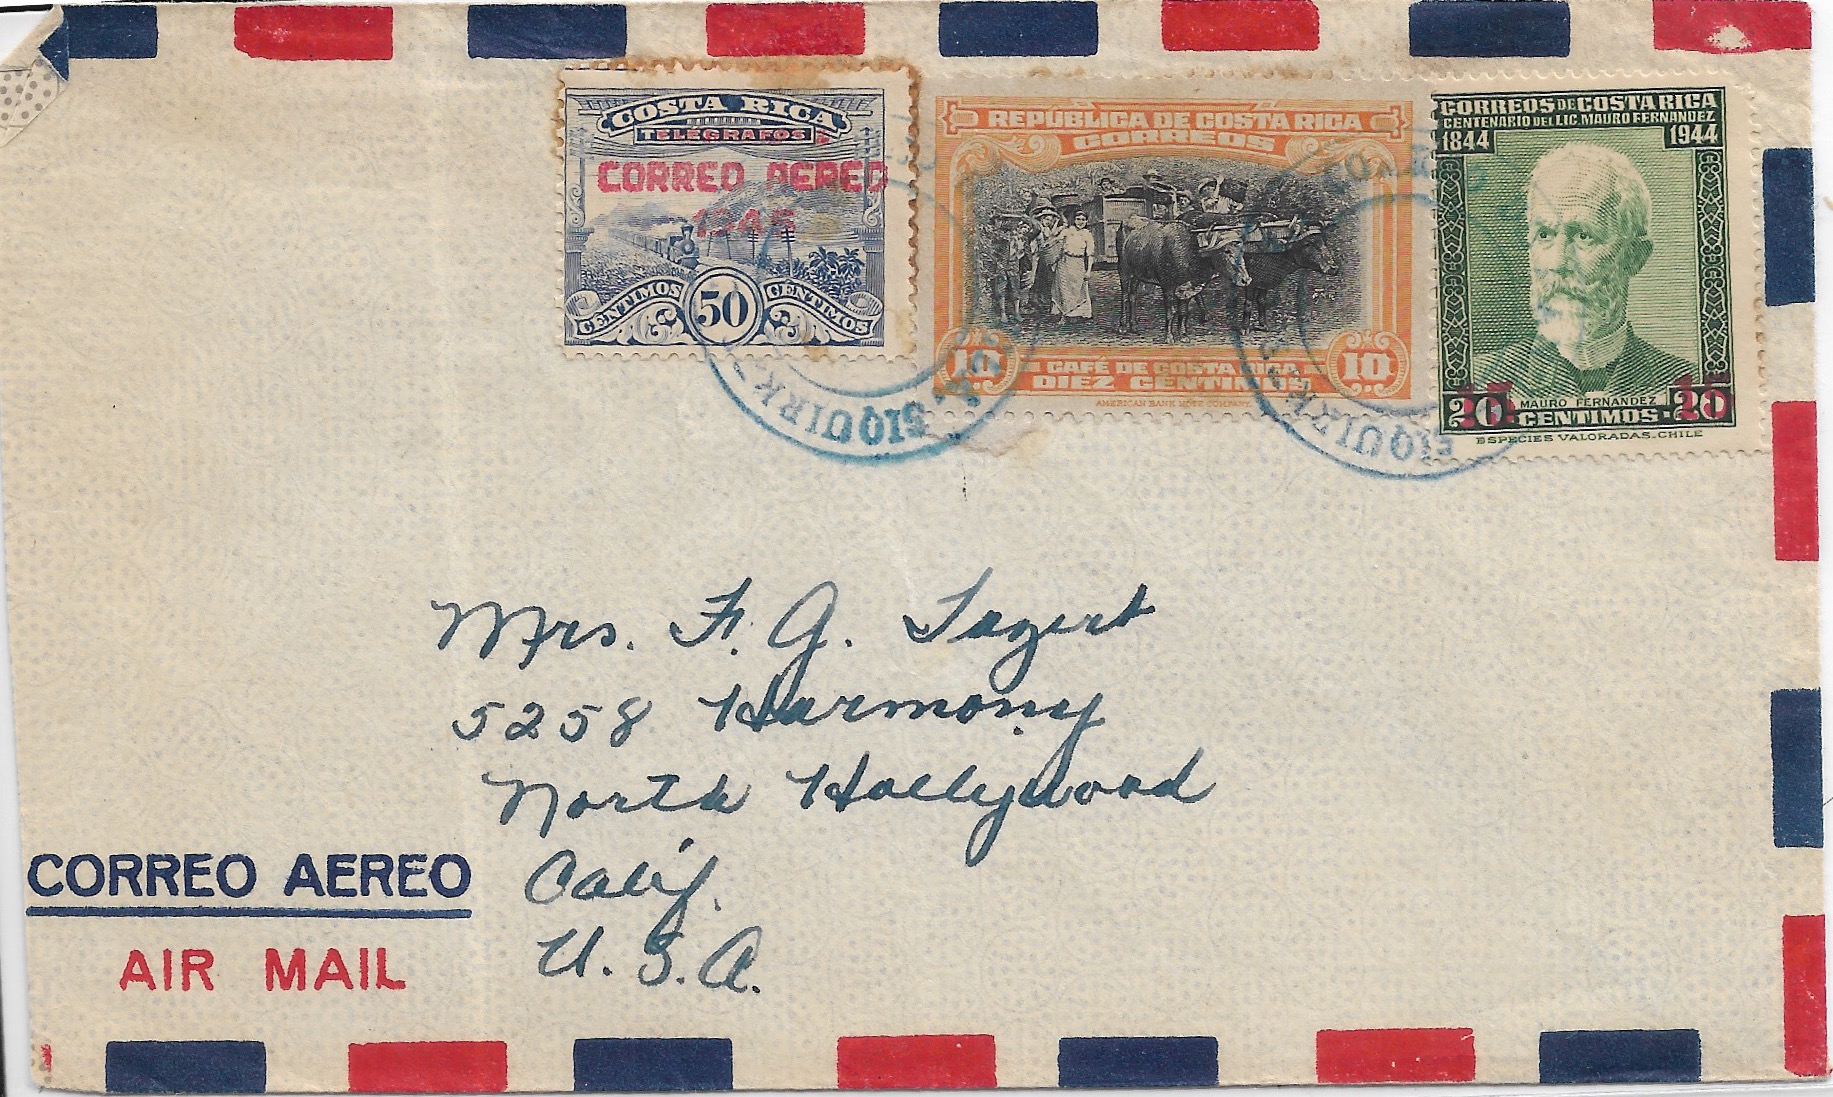 COSTA RICA
TELÉGRAFOS
CORREO AEREO
1945
CENTIMOS 50 CENTIMOS
REPÚBLICA DE COSTA RICA
CORREOS
10 CAFÉ DE COSTA RICA 10
DIEZ CENTIMOS
AMERICAN BANK NOTE COMPANY
CORREOS DE COSTA RICA
CENTENARIO DEL LIC. MAURO FERNANDEZ
1844 1944
15 15
20 MAURO FERNANDEZ 20
CENTIMOS
ESPECIES VALORADAS. CHILE
SIQUIRR
SIQUIRR
Mrs. F. G. Tagert
5258 Harmony
North Hollywood
Calif.
U.S.A.
CORREO AEREO
AIR MAIL